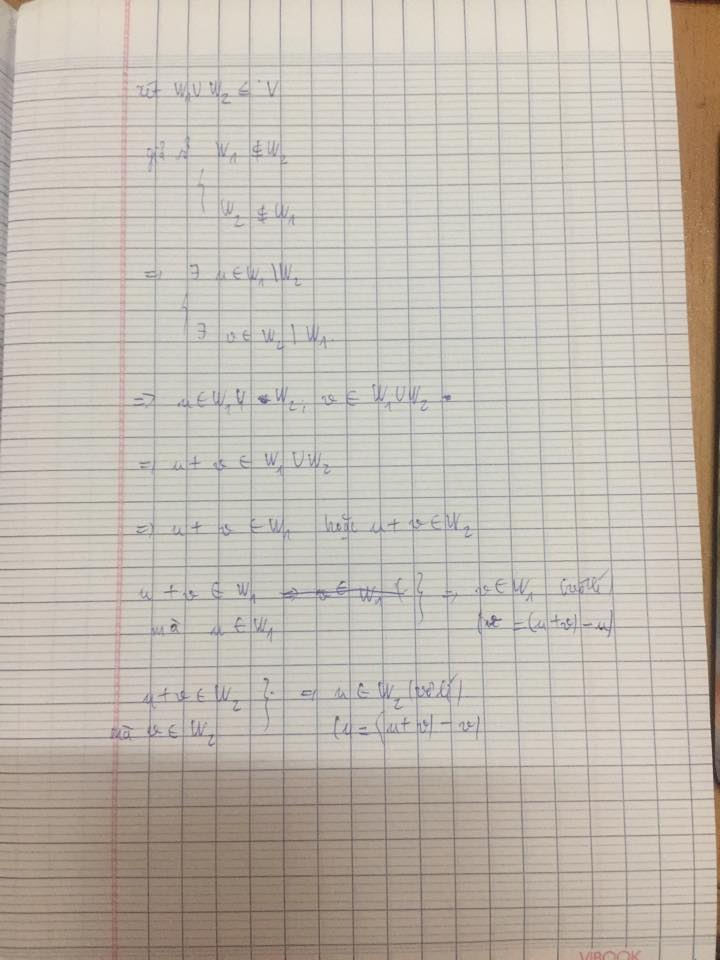 xét W₁∪W₂ ∋ V
giả sử { W₁ ⊄ W₂
W₂ ⊄ W₁
⇒ { ∃ u ∈ W₁ \ W₂
∃ v ∈ W₂ \ W₁.
⇒ u ∈ W₁ ∪ W₂, v ∈ W₁∪W₂
⇒ u + v ∈ W₁ ∪ W₂
⇒ u + v ∈ W₁ hoặc u + v ∈ W₂
u + v ∈ W₁
mà u ∈ W₁ } ⇒ v ∈ W₁ (vô lí)
(v = (u+v) - u)
u + v ∈ W₂
mà v ∈ W₂ } ⇒ u ∈ W₂ (vô lí)
(u = (u + v) - v)
VIBOOK